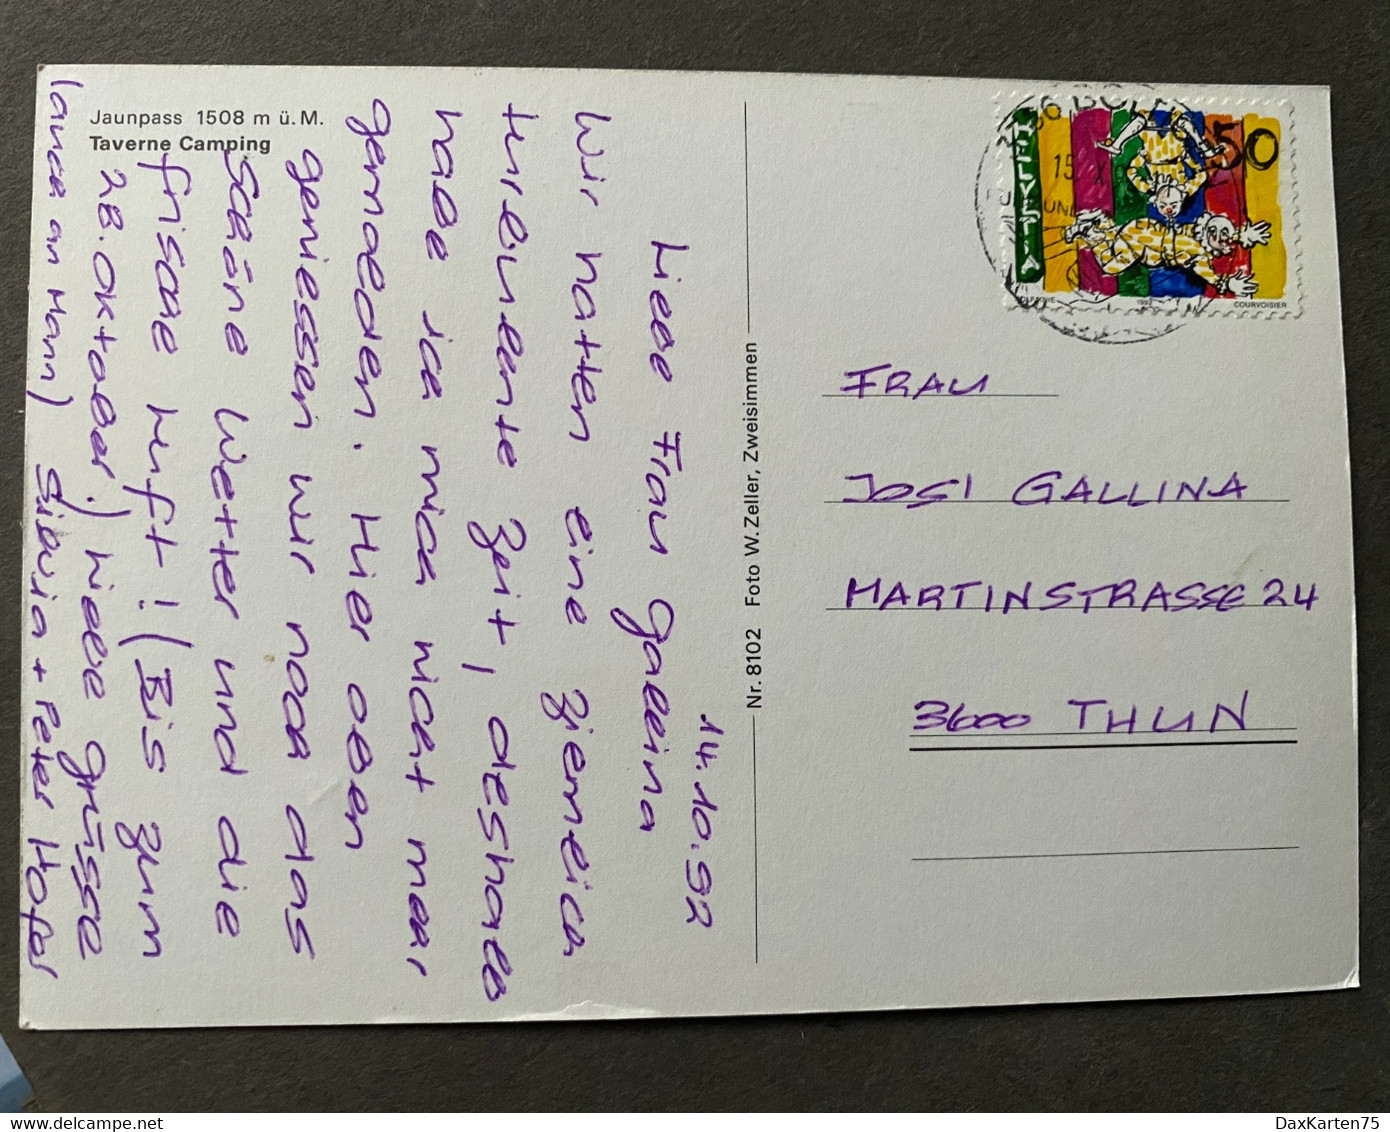 Jaunpass 1508 m ü. M.
Taverne Camping
14.10.92
Liebe Frau Gallina
Wir hatten eine ziemlich
turbulente Zeit, deshalb
habe ich mich nicht mehr
gemolden. Hier oben
geniessen wir noch das
schöne Wetter und die
frische Luft! (Bis zum
28. Oktober) Liebe Grüsse
lance an Mann) Silvia + Peter Hofer
Nr. 8102 Foto W. Zeller, Zweisimmen
HELVETIA
50
1992
COURVOISIER
15. X
FRAU
JOSI GALLINA
MARTINSTRASSE 24
3600 THUN
DaxKarten75